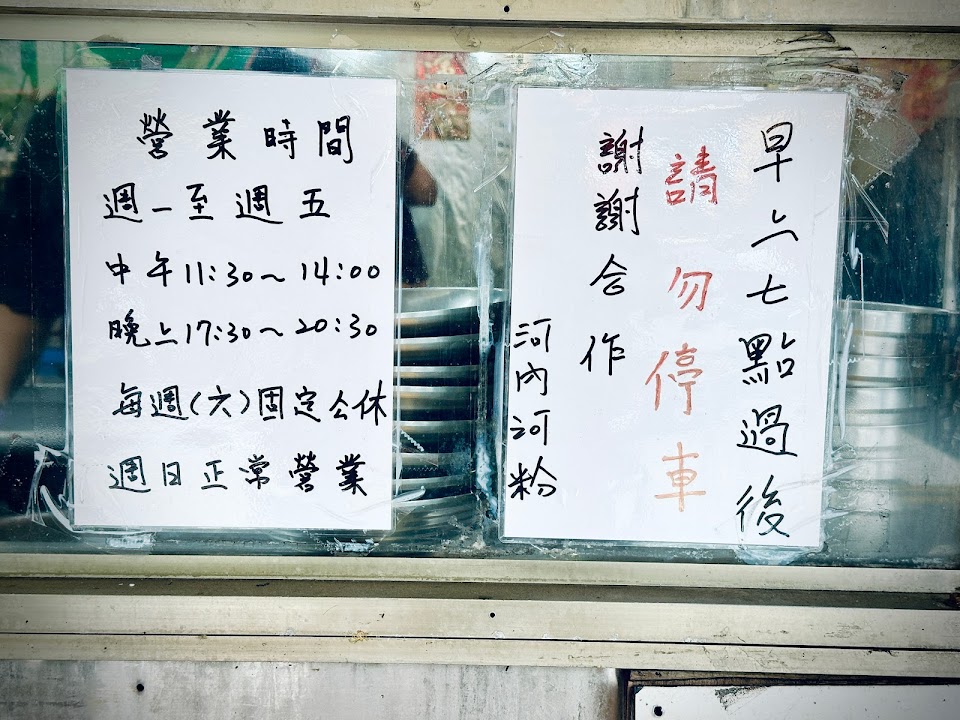 營業時間
週一至週五
中午11:30~14:00
晚上17:30~20:30
每週(六)固定公休
週日正常營業
早上七點過後
請勿停車
謝謝合作
河內河粉